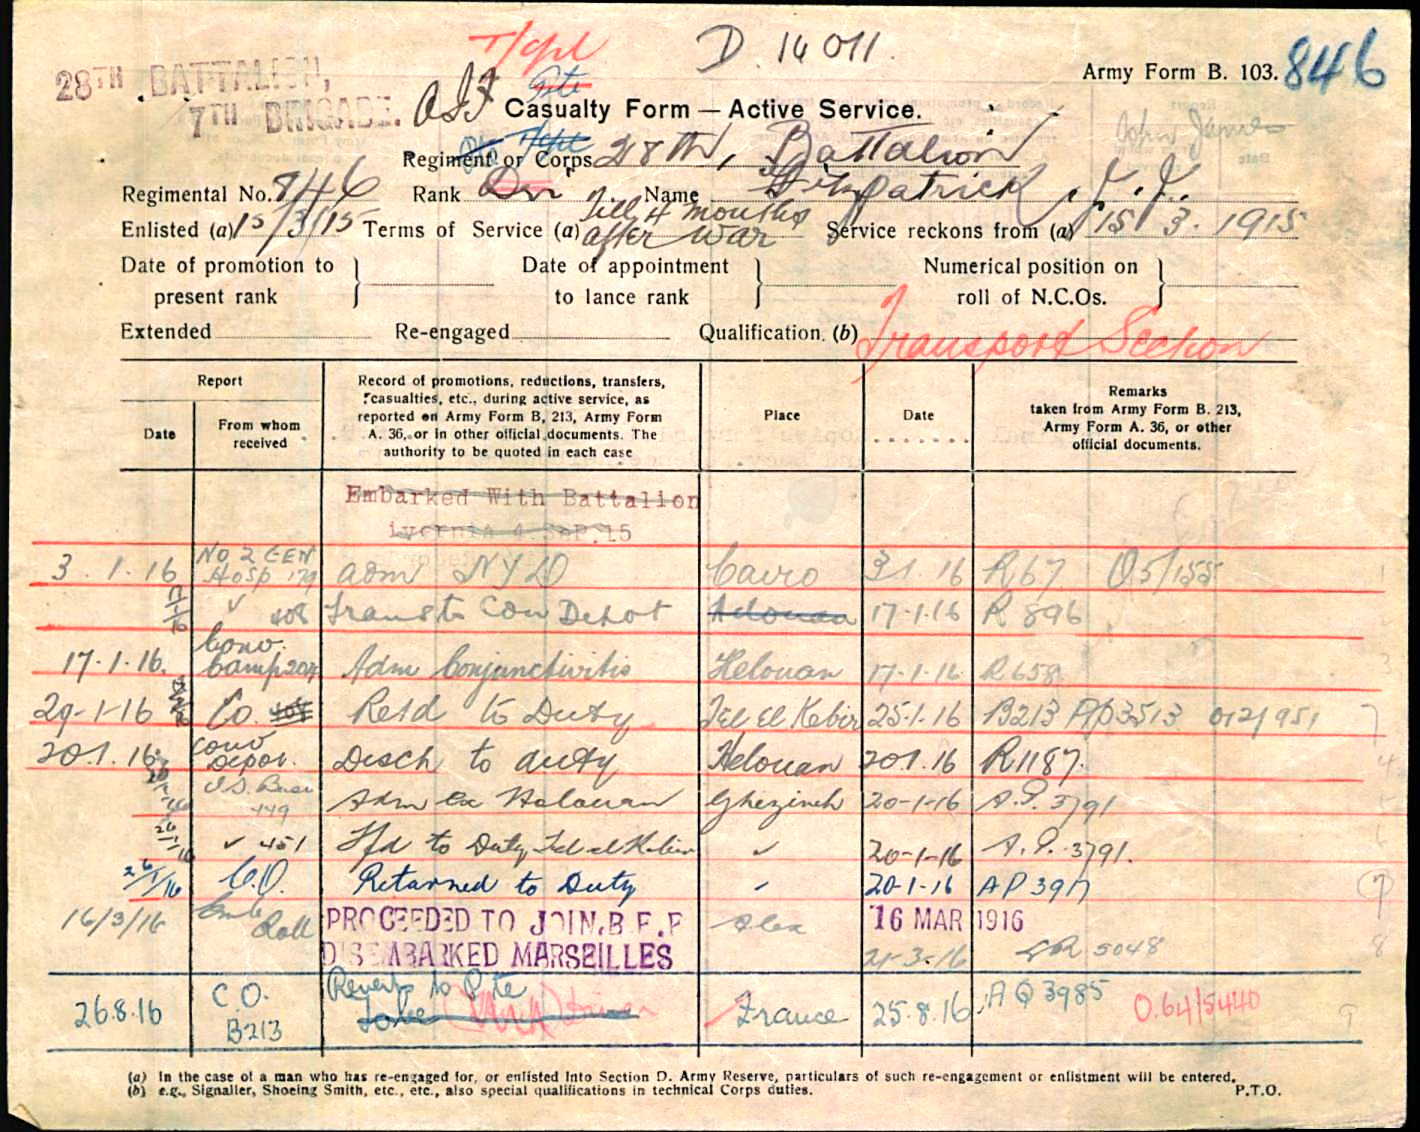 T/Cpl
D. 14011.
Army Form B. 103. 846
28TH BATTALION,
7TH BRIGADE.
AIF Pte
Casualty Form — Active Service.
Regiment or Corps 28th, Battalion
Regimental No. 846 Rank Dvr Name Fitzpatrick, J. J.
Enlisted (a) 15/3/15 Terms of Service (a) Till 4 months after war Service reckons from (a) 15 3. 1915
Date of promotion to present rank
Date of appointment to lance rank
Numerical position on roll of N.C.Os.
Extended Re-engaged Qualification. (b) Transport Section
Report
Date
From whom received
Record of promotions, reductions, transfers, casualties, etc., during active service, as reported on Army Form B, 213, Army Form A. 36, or in other official documents. The authority to be quoted in each case
Place
Date
Remarks taken from Army Form B. 213, Army Form A. 36, or other official documents.
Embarked With Battalion
3.1.16 No 2 GEN Hosp 179 adm NYD Cairo 3 1. 16 R67 O5/155
✓ 408 Trans to Con Depot Helouan 17-1-16 R 896
17-1-16. Conv. Camp 204 Adm Conjunctivitis Helouan 17-1-16 R 658
29-1-16 Co. Retd to Duty Tel el Kebir 25-1-16 B213 AP3513 012/951 7
20.1.16 Conv Depot. Disch to duty Helouan 20.1.16 R1187. 4
449 Adm ex Helouan Ghezireh 20-1-16 A.P. 3791
✓ 451 Tfd to Duty Tel el Kebir ✓ 20-1-16 A.P. 3791.
26/1/16 C.O. Returned to Duty ✓ 20-1-16 AP 3917 7
16/3/16 Emb Roll PROCEEDED TO JOIN B.E.F Alex 16 MAR 1916
DISEMBARKED MARSEILLES 21-3-16 5048 8
26.8.16 C O. B213 Reverts to Pte France 25.8.16 AQ 3985 O.64/5440 9
(a) In the case of a man who has re-engaged for, or enlisted into Section D. Army Reserve, particulars of such re-engagement or enlistment will be entered.
(b) e.g., Signaller, Shoeing Smith, etc., etc., also special qualifications in technical Corps duties.
P.T.O.